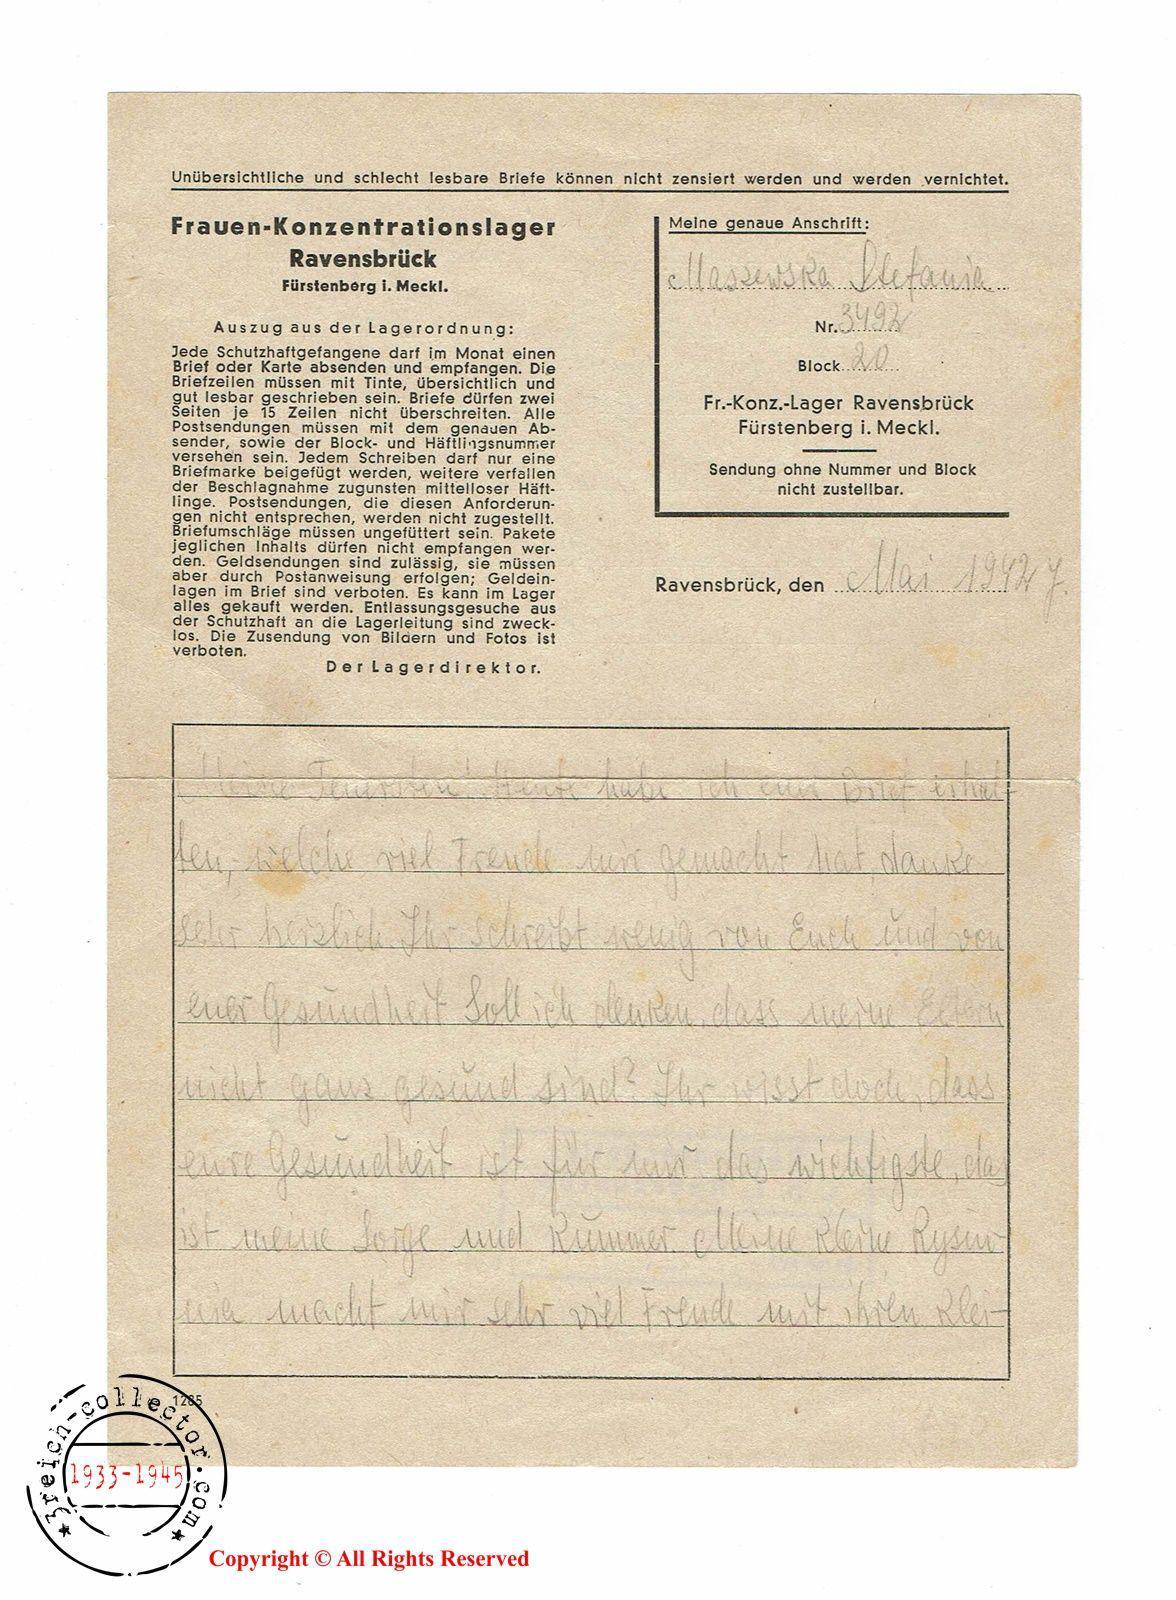 Unübersichtliche und schlecht lesbare Briefe können nicht zensiert werden und werden vernichtet.
Frauen-Konzentrationslager
Ravensbrück
Fürstenberg i. Meckl.
Auszug aus der Lagerordnung:
Jede Schutzhaftgefangene darf im Monat einen
Brief oder Karte absenden und empfangen. Die
Briefzeilen müssen mit Tinte, übersichtlich und
gut lesbar geschrieben sein. Briefe dürfen zwei
Seiten je 15 Zeilen nicht überschreiten. Alle
Postsendungen müssen mit dem genauen Ab-
sender, sowie der Block- und Häftlingsnummer
versehen sein. Jedem Schreiben darf nur eine
Briefmarke beigefügt werden, weitere verfallen
der Beschlagnahme zugunsten mittelloser Häft-
linge. Postsendungen, die diesen Anforderun-
gen nicht entsprechen, werden nicht zugestellt.
Briefumschläge müssen ungefüttert sein. Pakete
jeglichen Inhalts dürfen nicht empfangen wer-
den. Geldsendungen sind zulässig, sie müssen
aber durch Postanweisung erfolgen; Geldein-
lagen im Brief sind verboten. Es kann im Lager
alles gekauft werden. Entlassungsgesuche aus
der Schutzhaft an die Lagerleitung sind zweck-
los. Die Zusendung von Bildern und Fotos ist
verboten.
Der Lagerdirektor.
Meine genaue Anschrift:
Maszewska Stefania
Nr. 3492
Block 20
Fr.-Konz.-Lager Ravensbrück
Fürstenberg i. Meckl.
Sendung ohne Nummer und Block
nicht zustellbar.
Ravensbrück, den Mai 1942 J.
Meine Teuersten! Heute habe ich euer Brief erhal-
ten, welche viel Freude mir gemacht hat, danke
sehr herzlich. Ihr schreibt wenig von Euch und von
euer Gesundheit Soll ich denken, dass meine Eltern
nicht ganz gesund sind? Ihr wisst doch, dass
eure Gesundheit ist für mir das wichtigste, das
ist meine Sorge und Kummer. Meine kleine Rysiu-
nia macht mir sehr viel Freude mit ihren klei-
1285
3reich-collector.com
1933-1945
Copyright © All Rights Reserved